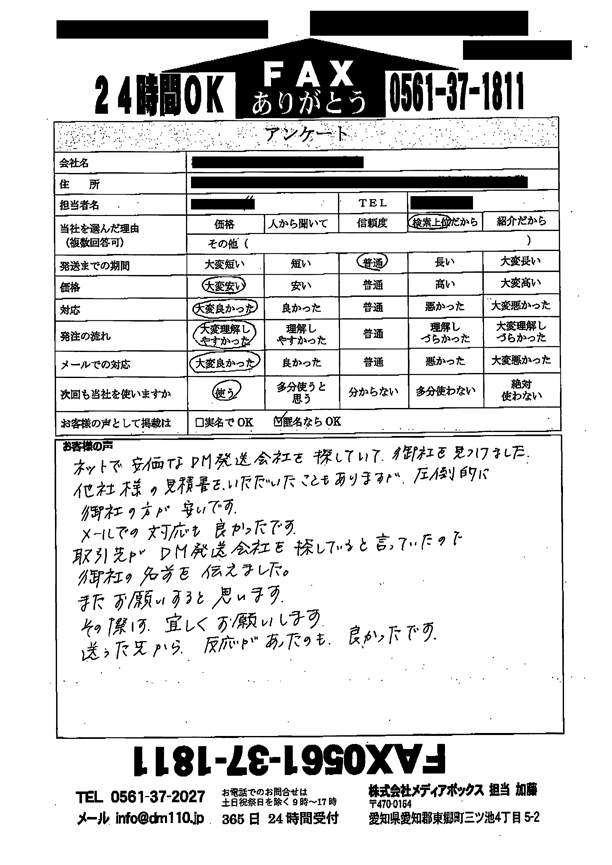 24時間OK FAX ありがとう 0561-37-1811
アンケート
会社名
住　所
担当者名 TEL
当社を選んだ理由 (複数回答可) 価格 人から聞いて 信頼度 検索上位だから 紹介だから
その他 ( )
発送までの期間 大変短い 短い 普通 長い 大変長い
価格 大変安い 安い 普通 高い 大変高い
対応 大変良かった 良かった 普通 悪かった 大変悪かった
発注の流れ 大変理解しやすかった 理解しやすかった 普通 理解しづらかった 大変理解しづらかった
メールでの対応 大変良かった 良かった 普通 悪かった 大変悪かった
次回も当社を使いますか 使う 多分使うと思う 分からない 多分使わない 絶対使わない
お客様の声として掲載は □実名でOK ☑匿名ならOK
お客様の声
ネットで安価なDM発送会社を探していて、御社を見つけました。
他社様の見積書をいただいたこともありますが、圧倒的に
御社の方が安いです。
メールでの対応も良かったです。
取引先がDM発送会社を探していると言っていたので
御社の名前を伝えました。
またお願いすると思います。
その際は、宜しくお願いします。
送った先から、反応があったのも、良かったです。
FAX0561-37-1811
TEL 0561-37-2027 お電話でのお問合せは 土日祝祭日を除く9時〜17時 株式会社メディアボックス 担当 加藤
〒470-0164
メール info@dm110.jp 365日24時間受付 愛知県愛知郡東郷町三ツ池4丁目5-2